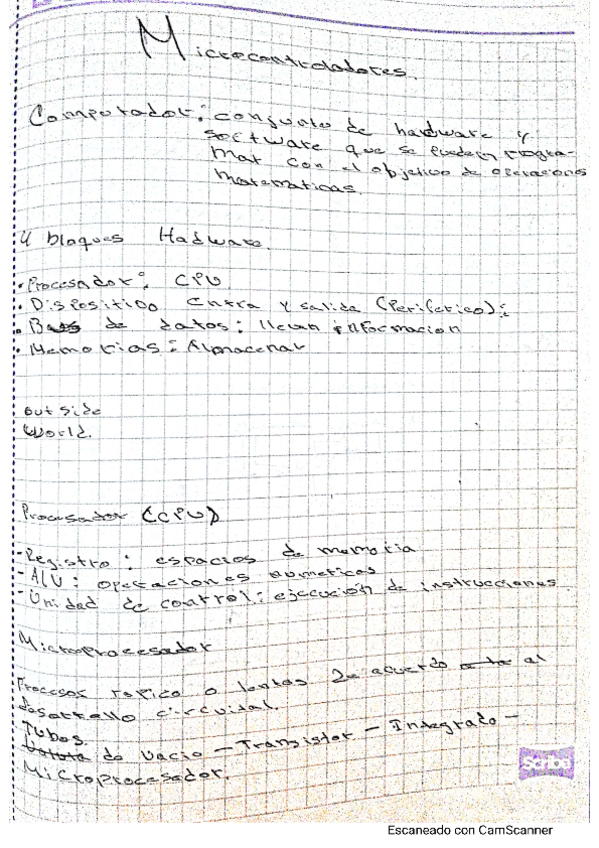 Microcontroladores.
Computador: conjunto de hardware y
software que se pueden progra-
mar con el objetivo de operaciones
matematicas.
4 bloques Hadware.
• Procesador: CPU
• Dispositivo Entra y salida (Periferico):
• Bus de datos: llevan informacion
• Memorias: Almacenar
outside
World.
Procesador (CPU)
- Registro: espacios de memoria
- ALU: operaciones
- Unidad de control: ejecución de instrucciones
Microprocesador
Procesos rapico o lentos De acuerdo al
desarrollo circuital.
Tubos
de vacio – Transistor – Integrado –
Microprocesador.
scribe
Escaneado con CamScanner